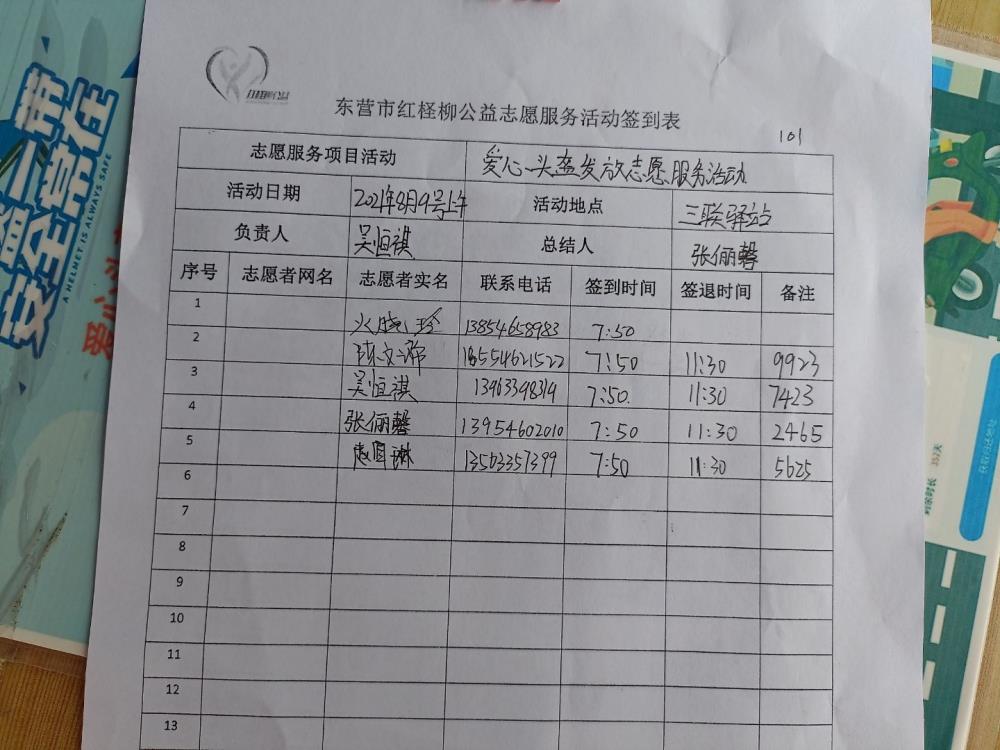 红柽柳公益
东营市红柽柳公益志愿服务活动签到表
101
志愿服务项目活动 爱心头盔发放志愿服务活动
活动日期 2021年8月9号上午 活动地点 三联驿站
负责人 吴恒祺 总结人 张俪馨
序号 志愿者网名 志愿者实名 联系电话 签到时间 签退时间 备注
1 火晓珍 13854658983 7:50
2 陈文 18554621522 7:50 11:30 9923
3 吴恒祺 13963398319 7:50. 11:30 7423
4 张俪馨 13954602010 7:50 11:30 2465
5 赵 琳 13563357399 7:50 11:30 5625
6
7
8
9
10
11
12
13
盔一带
安全常在
A HELMET IS ALWAYS SAFE
获取归还地址